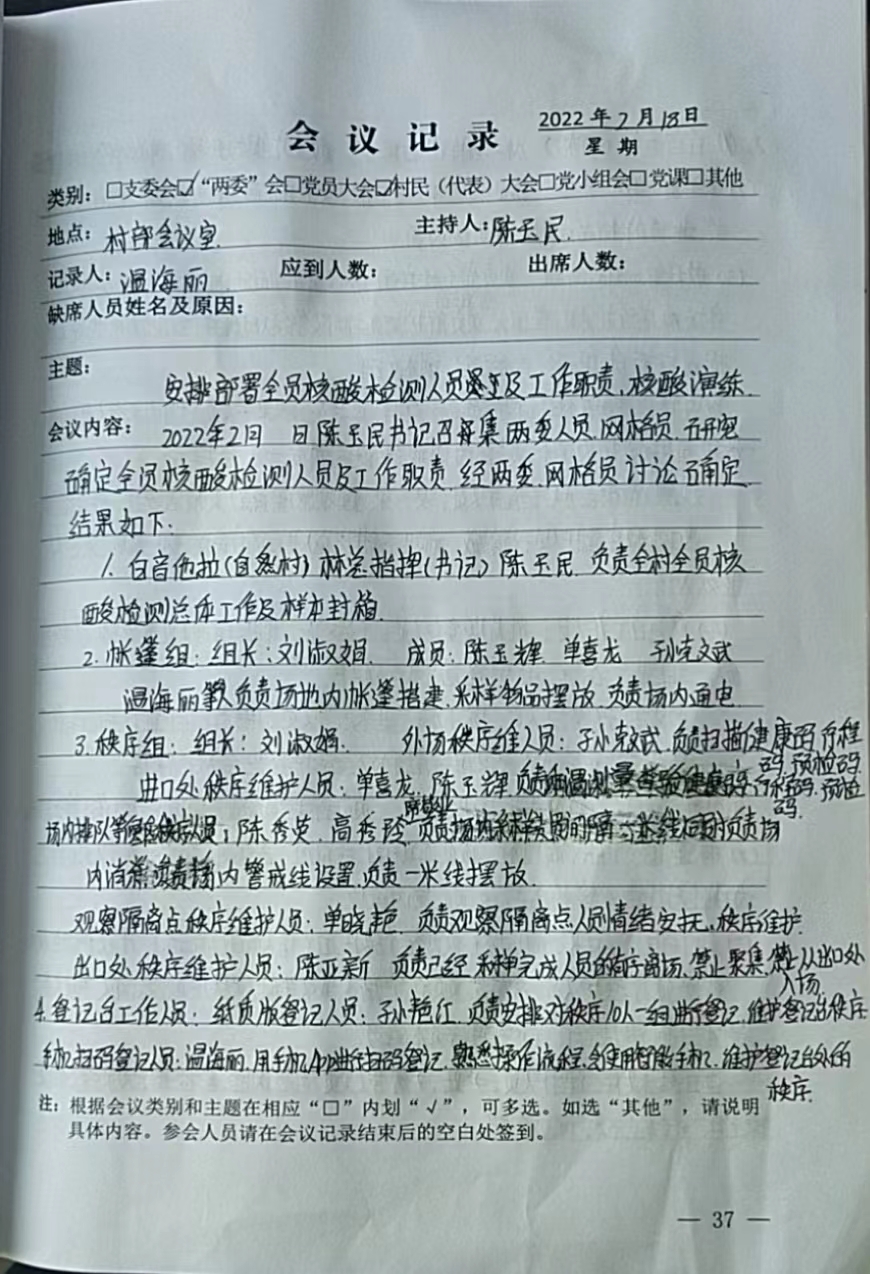 会议记录
2022年2月18日
星期
类别：□支委会☑“两委”会□党员大会☑村民（代表）大会□党小组会□党课□其他
地点：村部会议室 主持人：陈玉民.
记录人：温海丽 应到人数： 出席人数：
缺席人员姓名及原因：
主题：
安排部署全员核酸检测人员及工作职责.核酸演练.
会议内容：2022年2月 日陈玉民书记召集两委人员.网格员.研究
确定全员核酸检测人员及工作职责.经两委.网格员讨论确定.
结果如下：
1.白音他拉(自然村) 总指挥(书记) 陈玉民.负责全村全员核
酸检测总体工作及样本封箱.
2.帐篷组：组长：刘淑娟. 成员：陈玉辉 单喜龙 孙克文武
温海丽 负责场地内帐篷搭建.采样物品摆放.负责场内通电
3.秩序组：组长：刘淑娟. 外场秩序维人员：孙克武.负责扫描健康码.行程
码.预检码.
进口处秩序维护人员：单喜龙.陈玉辉 行程码.预检
码.
场内排队 人员：陈秀英.高秀玲 负责场
内消杀 内警戒线设置.负责一米线摆放.
观察隔离点秩序维护人员：单晓艳 负责观察隔离点人员情绪安抚.秩序维护.
出口处秩序维护人员：陈亚新 负责已经采样完成人员的有序离场.禁止聚集.禁止从出口处
入场.
4.登记台工作人员：纸质版登记人员：孙艳红.负责安排对秩序10人一组进行登记.维护登记台秩序.
手机扫码登记人员：温海丽.用手机 进行扫码登记.熟悉操作流程.会使用智能手机.维护登记台处的
秩序.
注：根据会议类别和主题在相应“□”内划“√”，可多选。如选“其他”，请说明
具体内容。参会人员请在会议记录结束后的空白处签到。
— 37 —